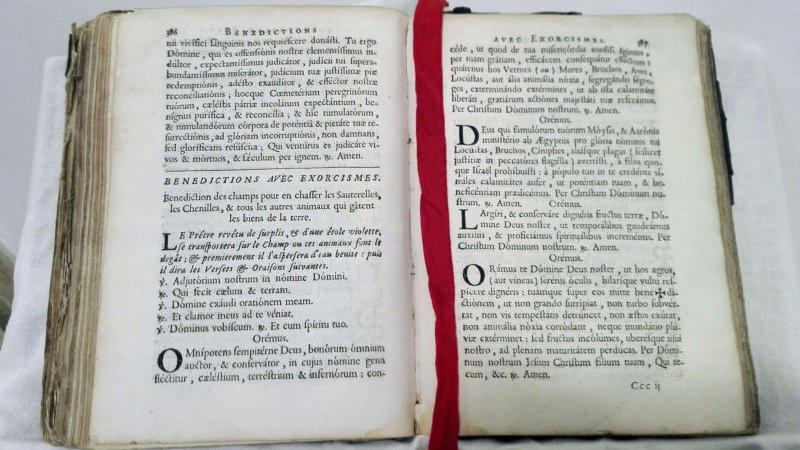 386 BENEDICTIONS
tui vivifici sanguinis nos requiescere donásti. Tu ergo
Dómine, qui es offensiónis nostræ clementíssimus in-
dúltor, expectantíssimus judicátor, judícii tui supera-
bundantíssimus miserátor, judícium tuæ justíssimæ piæ
redemptiónis, adésto exaudítor, & efféctor nostræ
reconciliatiónis; hocque Cœmetérium peregrinórum
tuórum, cæléstis pátriæ incolátum expectántium, be-
nígnus purífica, & reconcília; & hîc tumulatórum,
& tumulandórum córpora de poténtiâ & pietáte tuæ re-
surrectiónis, ad glóriam incorruptiónis, non damnans,
sed gloríficans resúscita; Qui ventúrus es judicáre vi-
vos & mórtuos, & sǽculum per ignem. ℟. Amen.
BENEDICTIONS AVEC EXORCISMES.
Benediction des champs pour en chasser les Sauterelles,
les Chenilles, & tous les autres animaux qui gâtent
les biens de la terre.
LE Prêtre revêtu de surplis, & d'une étole violette,
se transportera sur le Champ ou ces animaux font le
degât; & premierement il l'aspersera d'eau benite: puis
il dira les Versets & Oraisons suivantes.
℣. Adjutórium nostrum in nómine Dómini.
℟. Qui fecit cælum & terram.
℣. Dómine exáudi oratiónem meam.
℟. Et clamor meus ad te véniat.
℣. Dóminus vobíscum. ℟. Et cum spíritu tuo.
Orémus.
OMnípotens sempitérne Deus, bonórum ómnium
auctor, & conservátor, in cujus nómine genu
fléctitur, cæléstium, terréstrium & infernórum; con-
AVEC EXORCISMES. 387
céde, ut quod de tua misericórdia confísi ágimus,
per tuam grátiam, efficácem consequátur efféctum:
quátenus hos Vermes (ou) Mures, Bruchos, Aves,
Locústas, aut ália animália nóxia, segregándoségre-
ges, exterminándo extérmines, ut ab ista calamitáte
líberati, gratiárum actiónes majestáti tuæ referámus.
Per Christum Dóminum nostrum. ℟. Amen.
Orémus.
DEus qui famulórum tuórum Móysis, & Aarónis
ministério ab Ægyptis pro glória nóminis tui
Locústas, Bruchos, Cínyphes, aliásque plagas (scílicet
justítiæ in peccatóres flagélla) avertísti, à fíliis quo-
que Israel prohibuísti: à pópulo tuo in te credénte sí-
miles calamitátes aufer, ut poténtiam tuam, & be-
neficéntiam prædicémus. Per Christum Dóminum no-
strum. ℟. Amen. Orémus.
LArgíri, & conserváre dignéris fructus terræ, Dó-
mine Deus noster, ut temporálibus gaudeámus
auxíliis, & proficiámus spirituálibus increméntis. Per
Christum Dóminum nostrum. ℟. Amen.
Orémus.
ORámus te Dómine Deus noster, ut hos agros,
(aut víneas) serénis óculis, hilaríque vultu res-
pícere dignéris: tuámque super eos mitte bene✠di-
ctiónem, ut non grando surrípiat, non turbo subvér-
tat, non vis tempestátis detrúncet, non æstus exúrat,
non animália nóxia corródant, neque inundátio plú-
viæ extérminet: sed fructus incólumes, uberésque úsui
nostro, ad plenam maturitátem perdúcas. Per Dómi-
num nostrum Jesum Christum fílium tuum, Qui te-
cum, &c. ℟. Amen.
Ccc ij